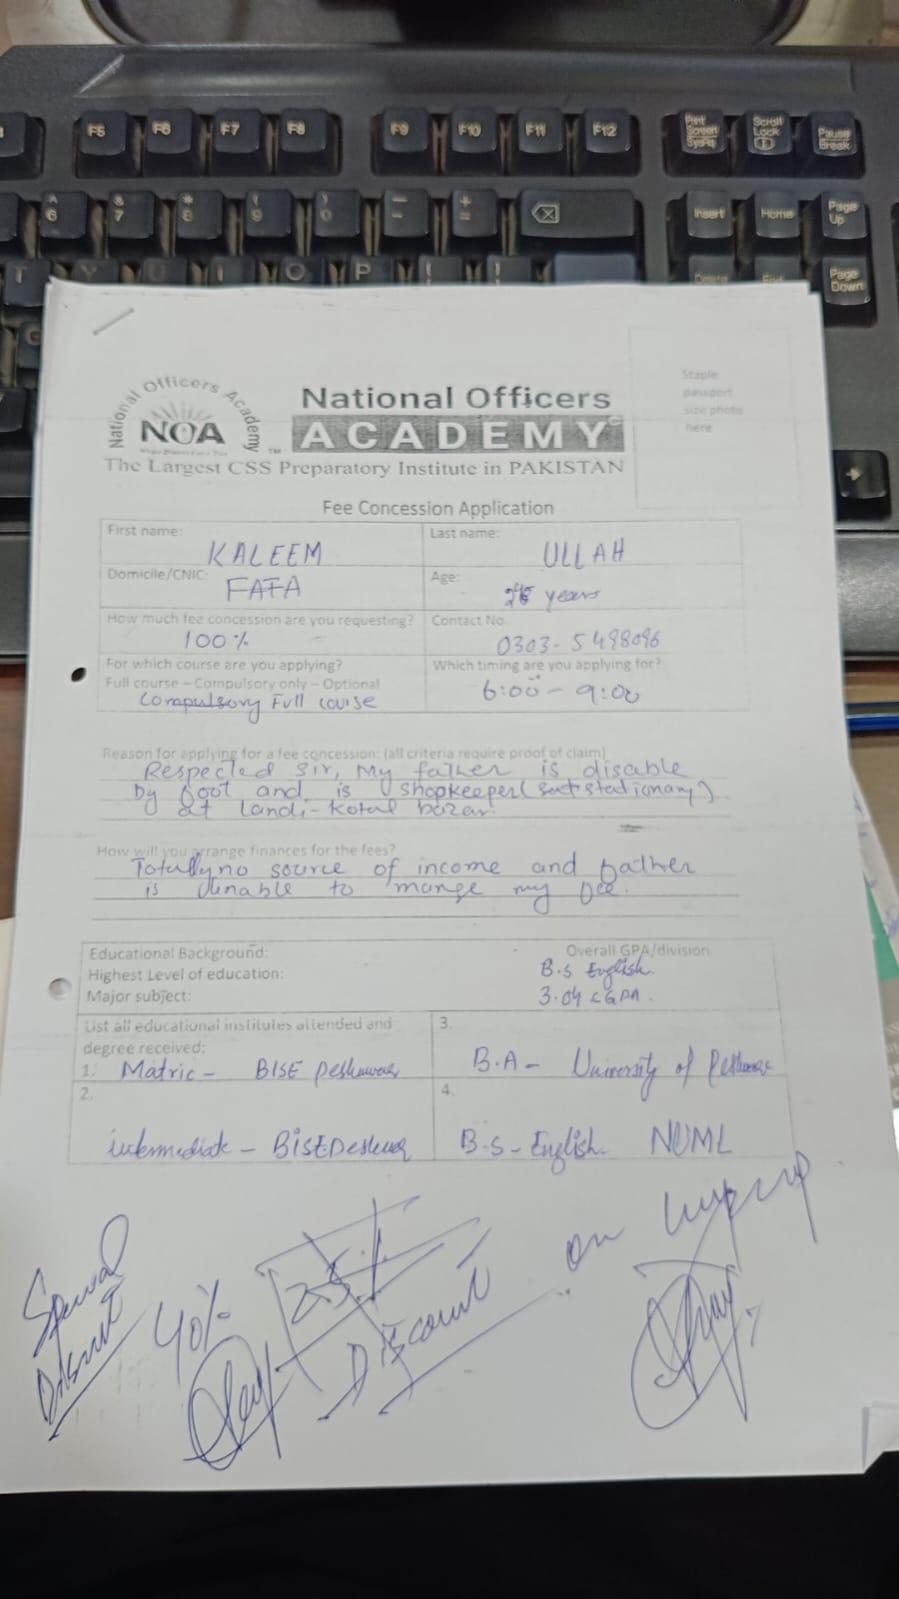 F5 F6 F7 F8 F9 F10 F11 F12 Print Screen SysRq Scroll Lock Pause Break
^ 6 & 7 * 8 ( 9 ) 0 - + = Insert Home Page Up
T Y U I O P Delete End Page Down
Staple
passport
size photo
here
National Officers Academy
NOA
TM
National Officers
ACADEMY
The Largest CSS Preparatory Institute in PAKISTAN
Fee Concession Application
First name: KALEEM
Last name: ULLAH
Domicile/CNIC: FATA
Age: years
How much fee concession are you requesting?
100%
Contact No.
0303-5498096
For which course are you applying?
Full course – Compulsory only – Optional
Compulsory Full course
Which timing are you applying for?
6:00 – 9:00
Reason for applying for a fee concession: (all criteria require proof of claim)
Respected Sir, My father is disable
by foot and is shopkeeper (stationary)
at Landi-kotal bazar.
How will you arrange finances for the fees?
Totally no source of income and father
is unable to mange my fee.
Educational Background:
Highest Level of education:
Major subject:
Overall GPA/division
B.S English.
3.04 CGPA.
List all educational institutes attended and
degree received:
1. Matric – BISE Peshawar
3.
B.A – University of Peshawar
2.
intermediate – BISE Peshawar
4.
B.S – English. NUML
Special
Discount
40%
25%
Discount on